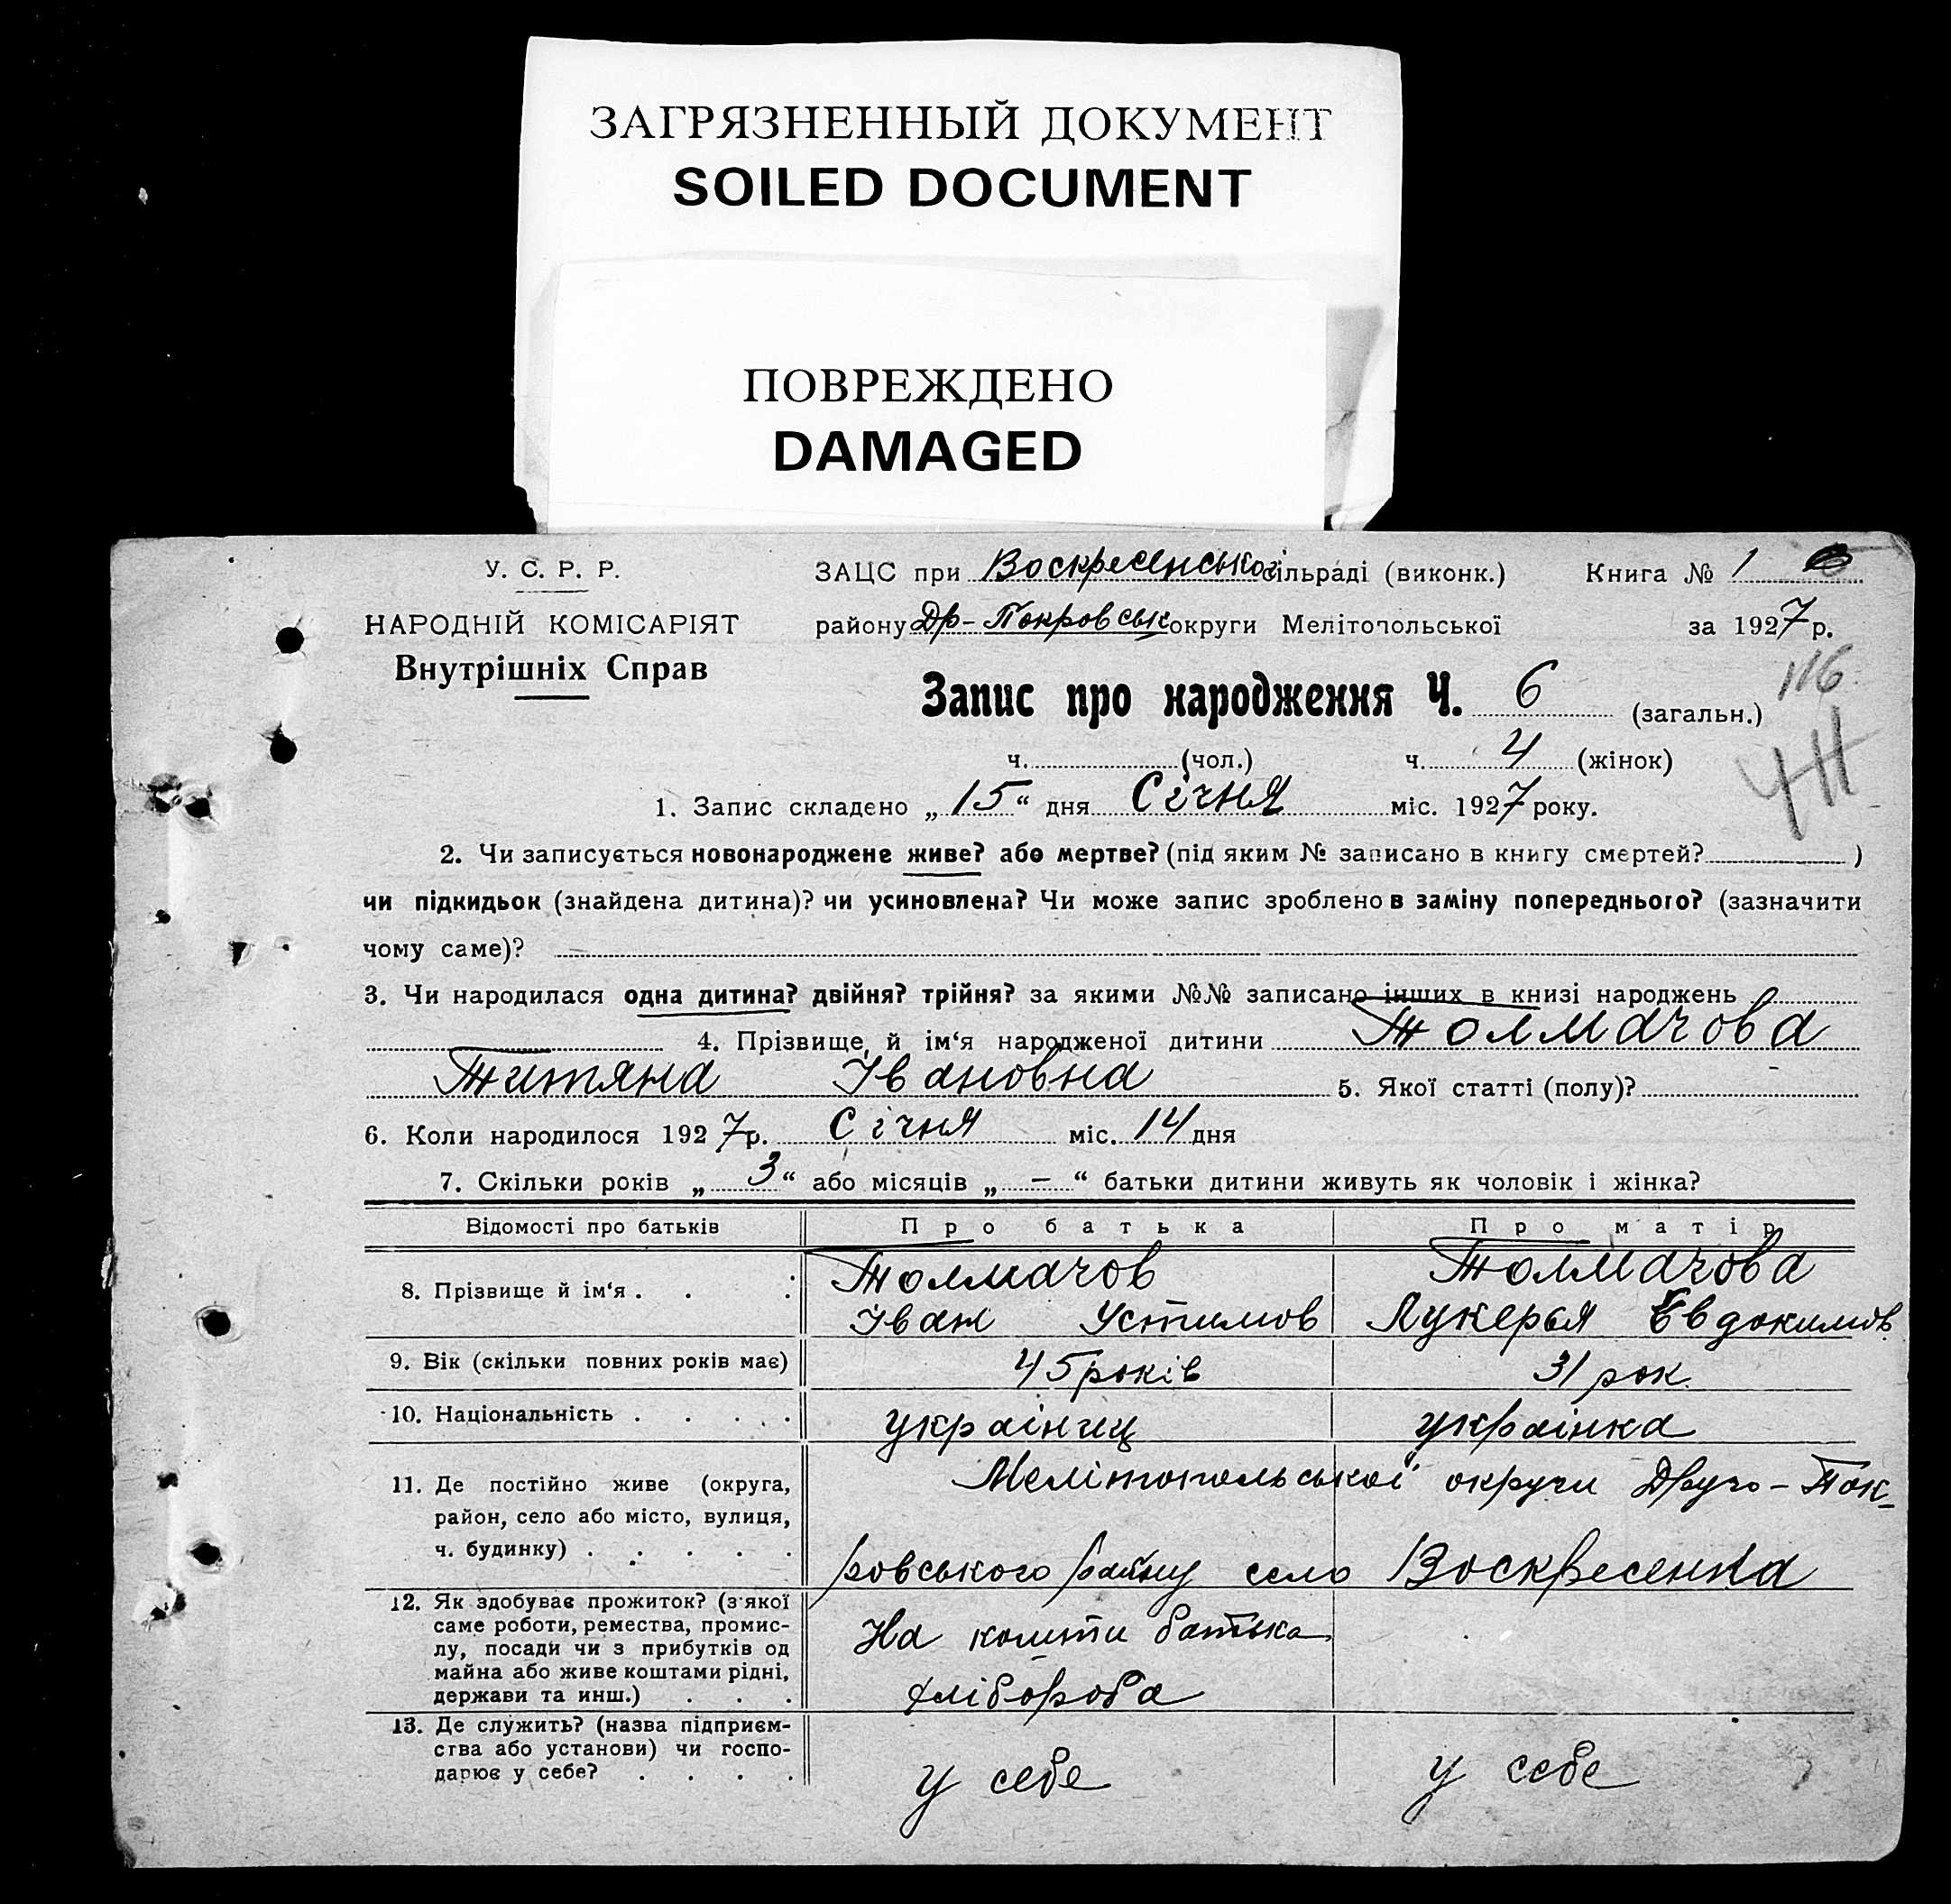 ЗАГРЯЗНЕННЫЙ ДОКУМЕНТ
SOILED DOCUMENT
ПОВРЕЖДЕНО
DAMAGED
У. С. Р. Р.
НАРОДНІЙ КОМІСАРІЯТ
Внутрішніх Справ
ЗАЦС при Воскресенської сільраді (виконк.) Книга № 1
району Др-Покровськ округи Мелітопольської за 1927 р.
116
Запис про народження Ч. 6 (загальн.)
ч. (чол.) ч. 4 (жінок)
1. Запис складено „15“ дня Січня міс. 1927 року.
2. Чи записується новонароджене живе? або мертве? (під яким № записано в книгу смертей? )
чи підкидьок (знайдена дитина)? чи усиновлена? Чи може запис зроблено в заміну попереднього? (зазначити
чому саме)?
3. Чи народилася одна дитина? двійня? трійня? за якими №№ записано інших в книзі народжень
4. Прізвище й ім‘я народженої дитини Толмачова
Титяна Івановна 5. Якої статті (полу)?
6. Коли народилося 1927 р. Січня міс. 14 дня
7. Скільки років „3“ або місяців „—“ батьки дитини живуть як чоловік і жінка?
Відомості про батьків Про батька Про матір
8. Прізвище й ім‘я . . : Толмачов Толмачова
Іван Устимов Лукерья Евдокимов.
9. Вік (скільки повних років має) 45 років 31 рок
10. Національність . . . . . українец українка
11. Де постійно живе (округа, Мелітопольської округи Друго-Пок-
район, село або місто, вулиця,
ч. будинку) . . . . . ровського району село Воскресенка
12. Як здобуває прожиток? (з якої
саме роботи, ремества, промис-
лу, посади чи з прибутків од
майна або живе коштами рідні,
держави та инш.) . . .
На кошти батька
хлібороба
13. Де служить? (назва підприєм-
ства або установи) чи госпо-
дарює у себе? . . . .
у себе у себе